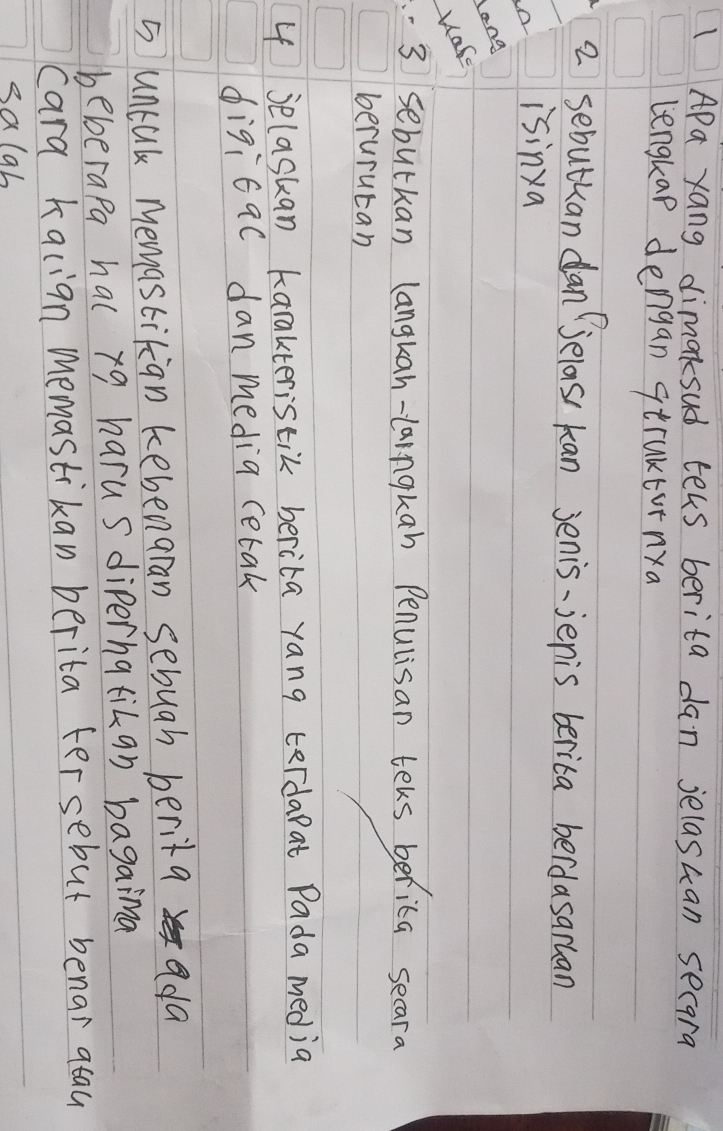 1 Apa yang dimaksud teks berita dan jelaskan secara
lengkap dengan strukturnya
2 sebutkan dan jelaskan jenis-jenis berita berdasarkan
isinya
3 sebutkan langkah-langkah Penulisan teks berita secara
berurutan
4 jelaskan karakteristik berita yang terdapat pada media
digital dan media cetak
5 untuk memastikan kebenaran sebuah berita ada
beberapa hal yg harus diperhatikan bagaima
Cara kalian memastikan berita tersebut benar atau
salah